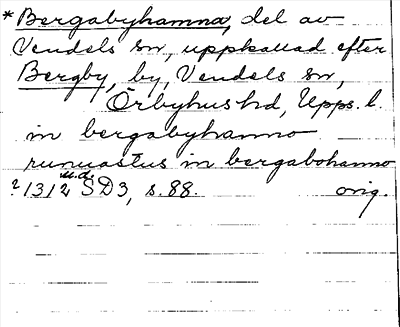 * Bergabyhamna, del av
Vendels sn, uppkallad efter
Bergby, by, Vendels sn,
Örbyhus hd, Upps. l.
in bergabyhanno
runuastus in bergabohanno
? 1312 u.d. SD3, s. 88. orig.